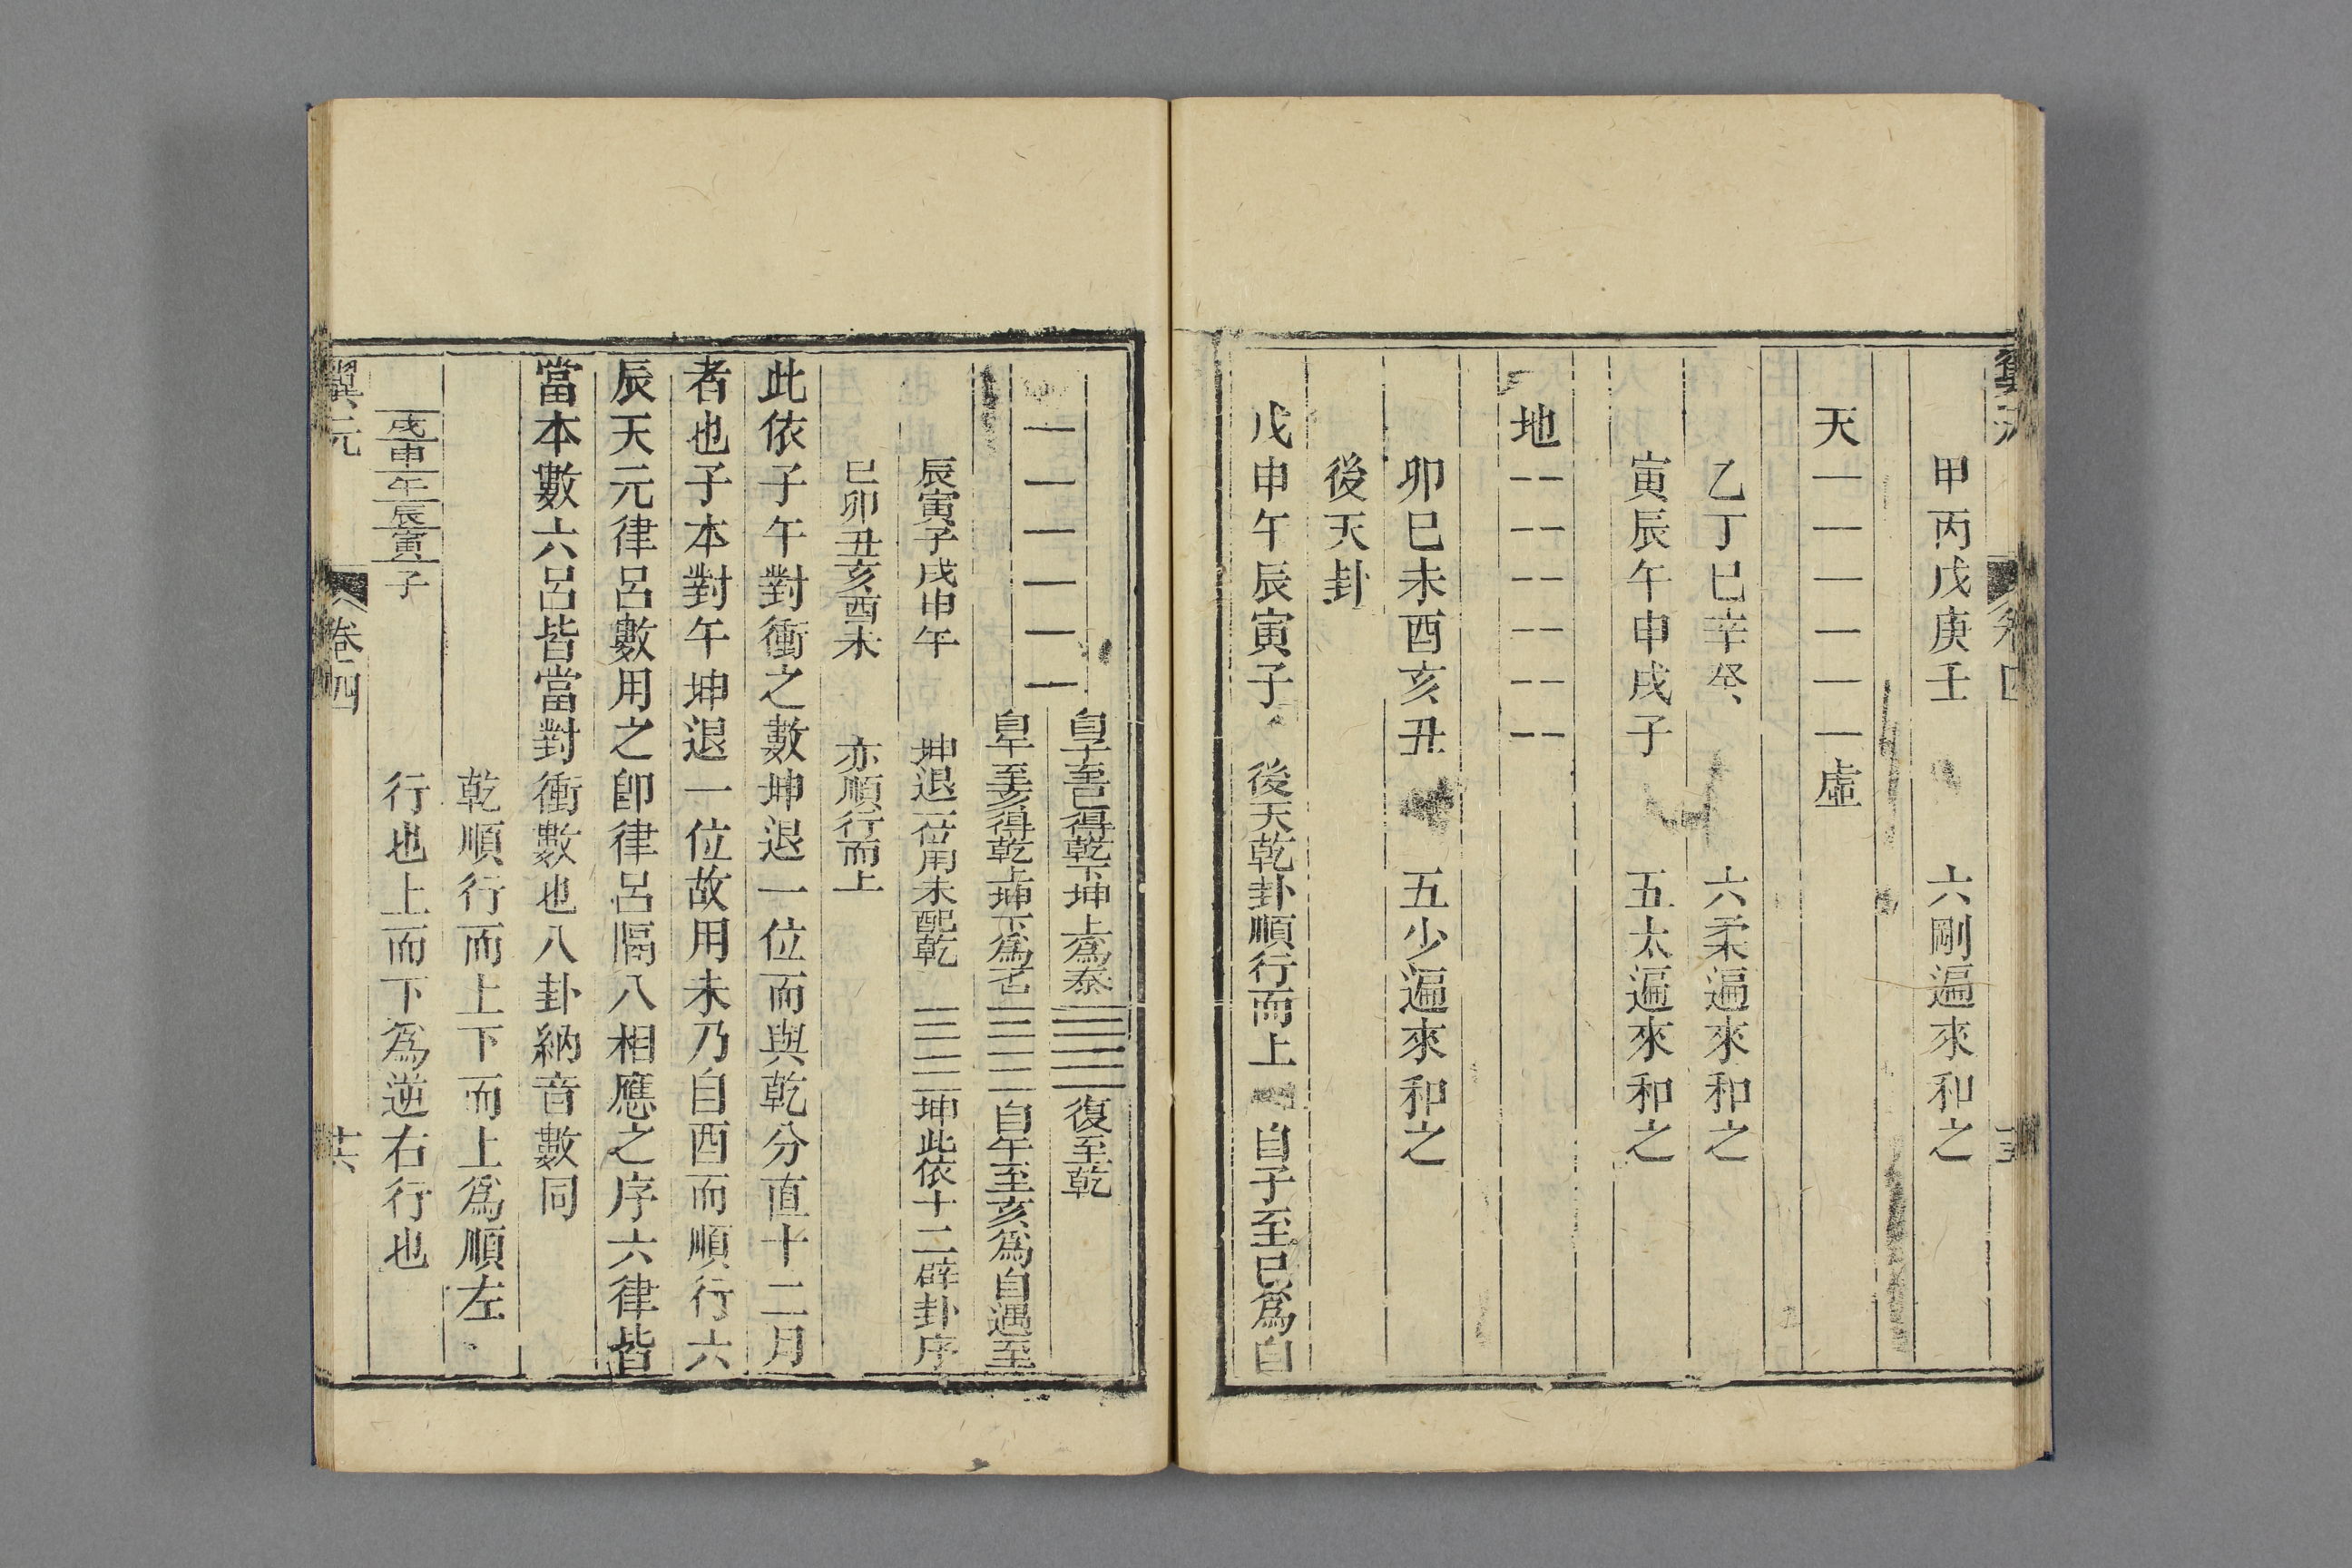 翼元 卷四
甲丙戊庚壬 六剛遍來和之
天 一 一 一 一 一 一 虛
乙丁巳辛癸 六柔遍來和之
寅辰午申戌子 五太遍來和之
地 -- -- -- -- -- --
卯巳未酉亥丑 五少遍來和之
後天卦
戊申午辰寅子 後天乾卦順行而上 自子至巳爲自
一 一 一 一 一 一 自子至巳得乾下坤上爲泰 復至乾
自午至亥得乾上坤下爲否 自午至亥爲自遇至
辰寅子戌申午 坤退一位用未配乾 坤此依十二辟卦序
巳卯丑亥酉未 亦順行而上
此依子午對衝之數坤退一位而與乾分直十二月
者也子本對午坤退一位故用未乃自酉而順行六
辰天元律呂數用之卽律呂隔八相應之序六律皆
當本數六呂皆當對衝數也八卦納音數同
乾順行而上下而上爲順左
戌申午辰寅子 行也上而下爲逆右行也
翼元 卷四 共